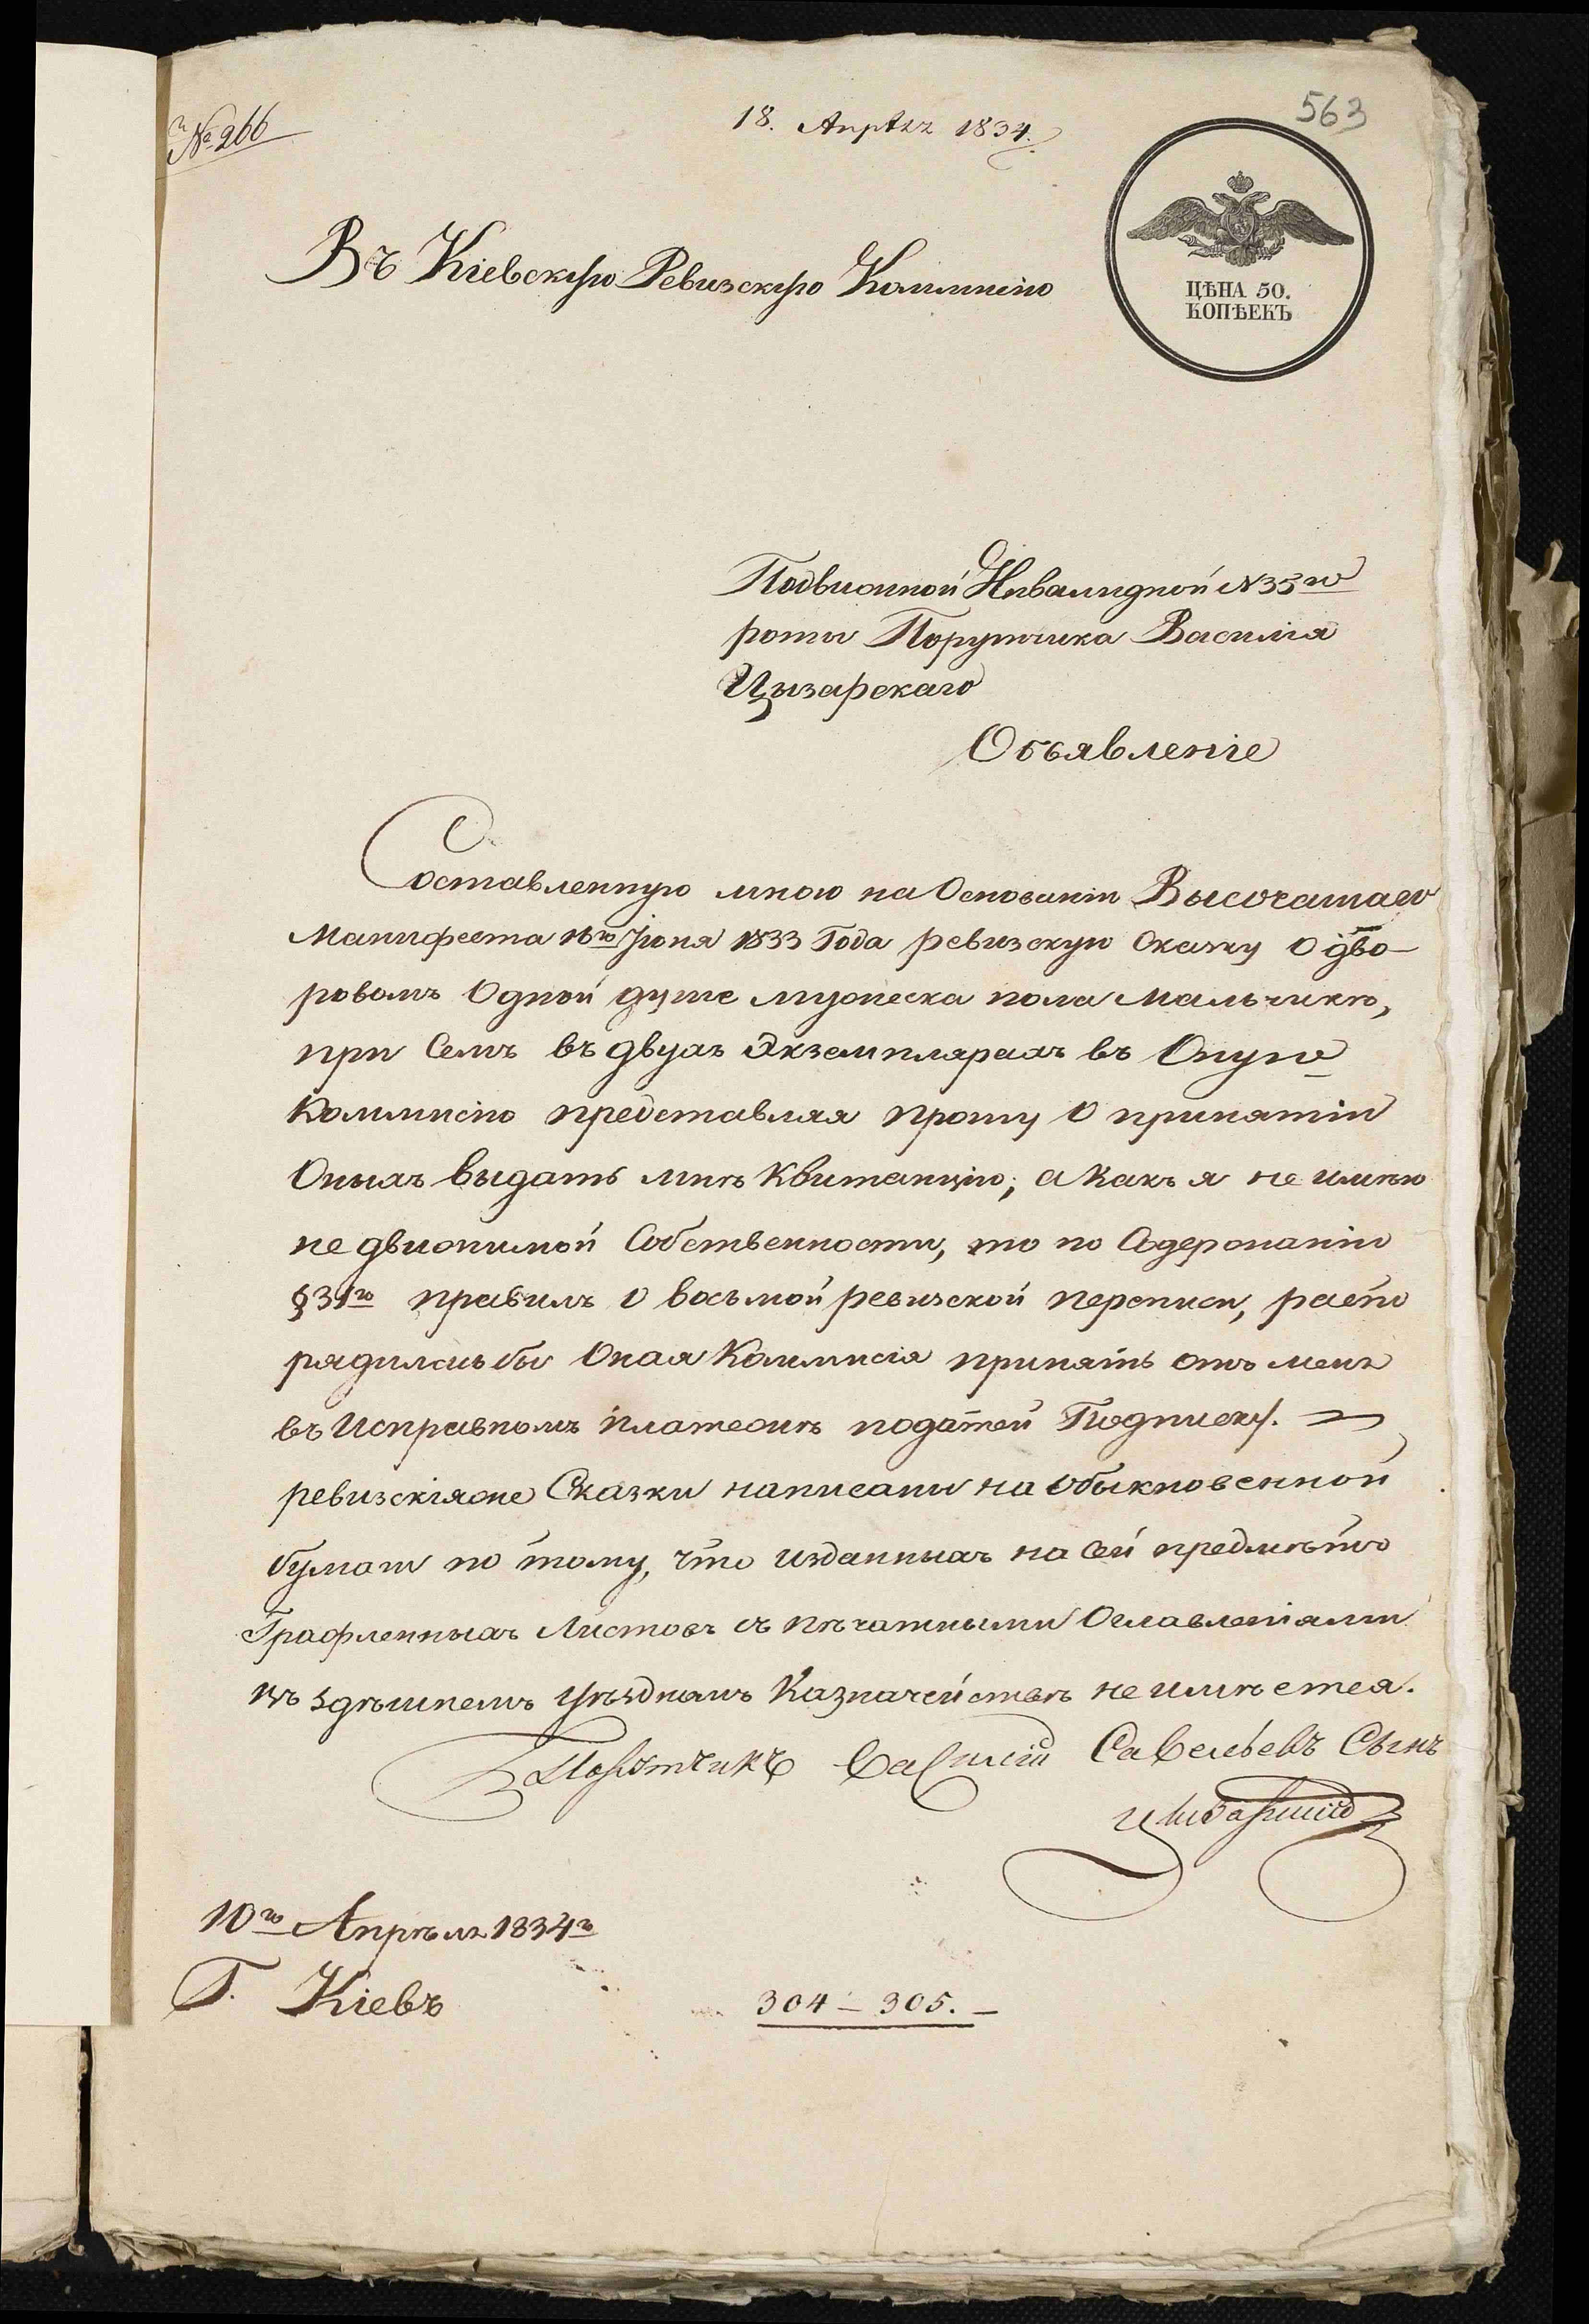 № 266
18. Апрѣля 1834.
563
ЦѢНА 50.
КОПѢЕКЪ
Въ Кіевскую Ревизскую Коммисію
Подвижной Инвалидной №35го
роты Порутчика Василія
Цызарскаго
Объявленіе
Составленную мною на Основаніи Высочашаго
Манифеста 16го Іюня 1833 Года ревизскую Сказку о дво-
ровомъ Одной душе мужеска пола Мальчикѣ,
при Семъ въ двухъ Экземплярахъ въ Оную
Коммисію представляя прошу о принятіи
Оныхъ выдать мнѣ Квитанцію; а Какъ я не имѣю
не движимой Собственности, то по Содержанію
§31го правилъ о восьмой ревизской переписи, распо
рядилсьбы Оная Коммисія принять отъ меня
въ Исправномъ платежѣ податей Подписку. —
ревизскіяже Сказки написаны на обыкновенной
бумаги по тому, что изданныхъ на Сей предмѣтъ
Графленныхъ Листовъ съ пѣчатными Оглавленіями
въ здѣшнемъ уѣздномъ Казначействѣ не имѣется.
Порутчикъ Василій Савельевъ Сынъ
10го Апрѣля 1834го
Г. Кіевъ
304 — 305. —